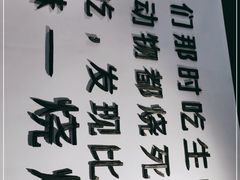 们那时吃生
动物都烧死
吃，发现比
一烧